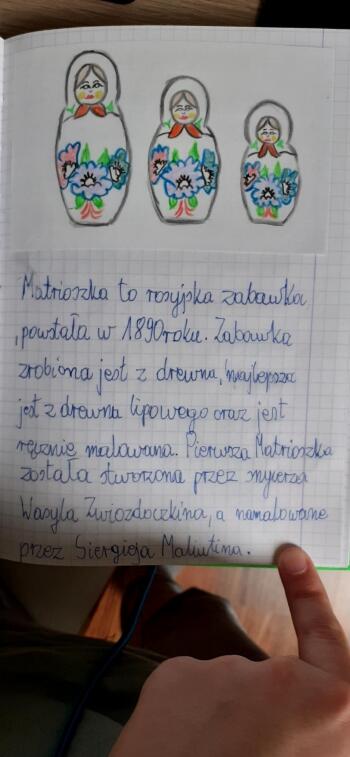 Matrioszka to rosyjska zabawka
, powstała w 1890 roku. Zabawka
zrobiona jest z drewna, najlepsza
jest z drewna lipowego oraz jest
ręcznie malowana. Pierwsza Matrioszka
została stworzona przez snycerza
Wasyla Zwiozdoczkina, a namalowane
przez Siergieja Maliutina.